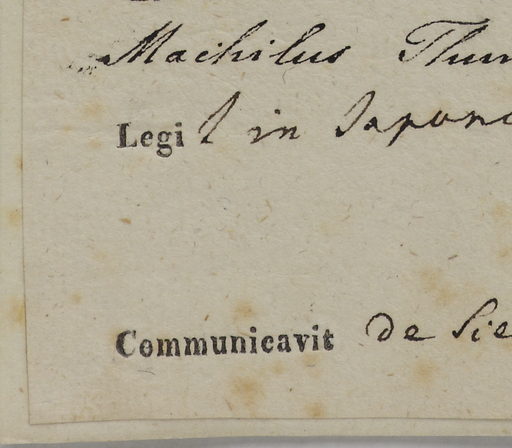 Machilus Thun
Legit in Japon
Communicavit de Sie